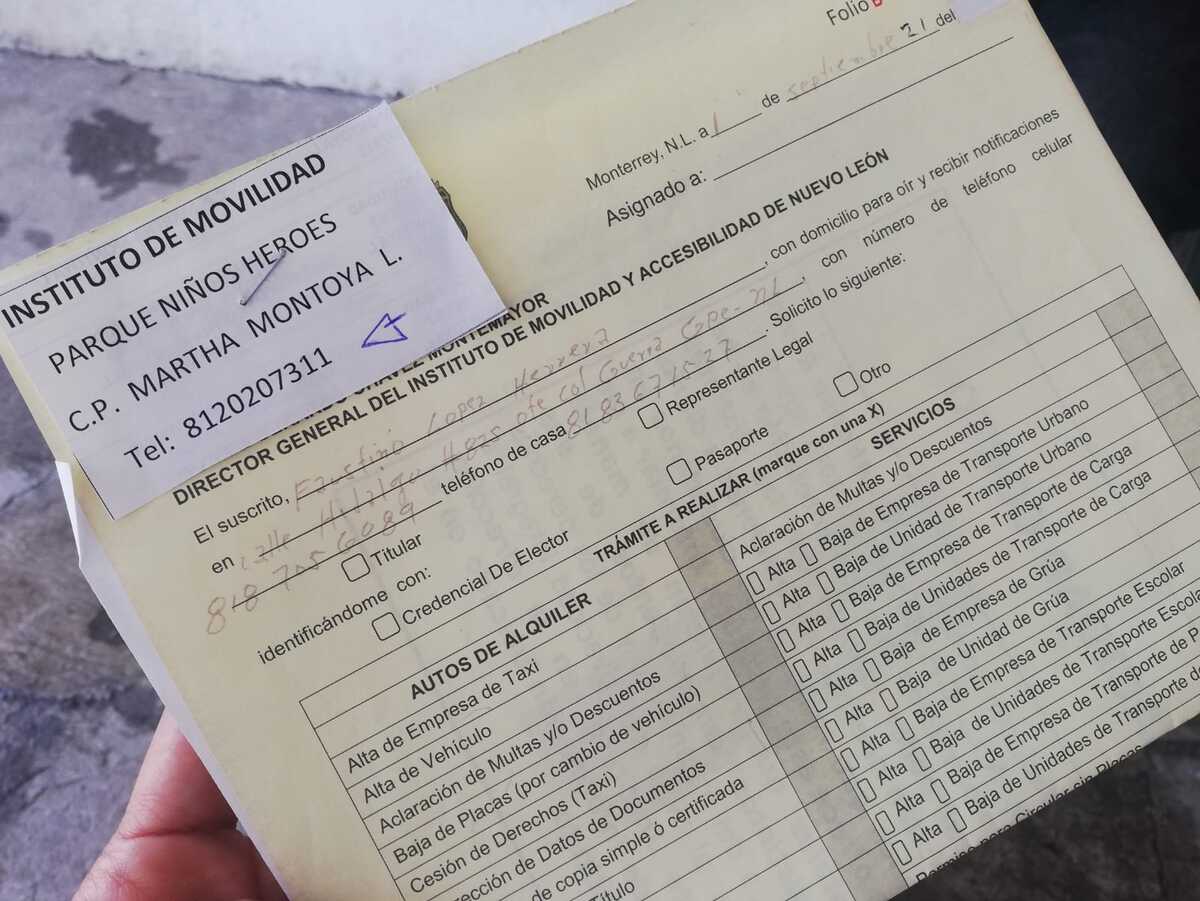 Folio
Monterrey, N.L. a 1 de septiembre 21 del
Asignado a:
INSTITUTO DE MOVILIDAD
PARQUE NIÑOS HEROES
C.P. MARTHA MONTOYA L.
Tel: 8120207311
CHÁVEZ MONTEMAYOR
DIRECTOR GENERAL DEL INSTITUTO DE MOVILIDAD Y ACCESIBILIDAD DE NUEVO LEÓN
El suscrito, Faustino Lopez Herrera, con domicilio para oír y recibir notificaciones
en calle Hidalgo ote col, con número de teléfono celular
818 7056089 teléfono de casa 8183671527. Solicito lo siguiente:
Titular Representante Legal
identificándome con:
Credencial De Elector Pasaporte Otro
TRÁMITE A REALIZAR (marque con una X)
AUTOS DE ALQUILER
Alta de Empresa de Taxi
Alta de Vehículo
Aclaración de Multas y/o Descuentos
Baja de Placas (por cambio de vehículo)
Cesión de Derechos (Taxi)
ección de Datos de Documentos
de copia simple ó certificada
Título
SERVICIOS
Aclaración de Multas y/o Descuentos
Alta Baja de Empresa de Transporte Urbano
Alta Baja de Unidad de Transporte Urbano
Alta Baja de Empresa de Transporte de Carga
Alta Baja de Unidades de Transporte de Carga
Alta Baja de Empresa de Grúa
Alta Baja de Unidad de Grúa
Alta Baja de Empresa de Transporte Escolar
Alta Baja de Unidades de Transporte Escola
Alta Baja de Empresa de Transporte de P
Alta Baja de Unidades de Transporte de
Permiso para Circular sin Placas